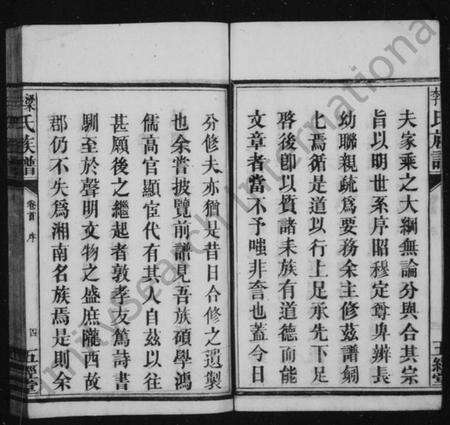 夫家乘之大綱無論分與合其宗
旨以明世系序昭穆定尊卑辨長
幼聯親疏為要務余主修茲譜匔
匕焉循是道以行上足承先下足
啓後以質諸未族有道德而能
文章者當不予嗤非夸也蓋今日
分修夫亦猶是昔日合修之遺製
也余嘗披覽前譜見吾族碩學鴻
儒高官顯宦代有其人自茲以往
甚願後之繼起者敦孝友篤詩書
馴至於聲明文物之盛庶隴西故
郡仍不失為湘南名族焉是則余
氏族譜
卷首 序
四
五經堂
氏族譜
五經堂